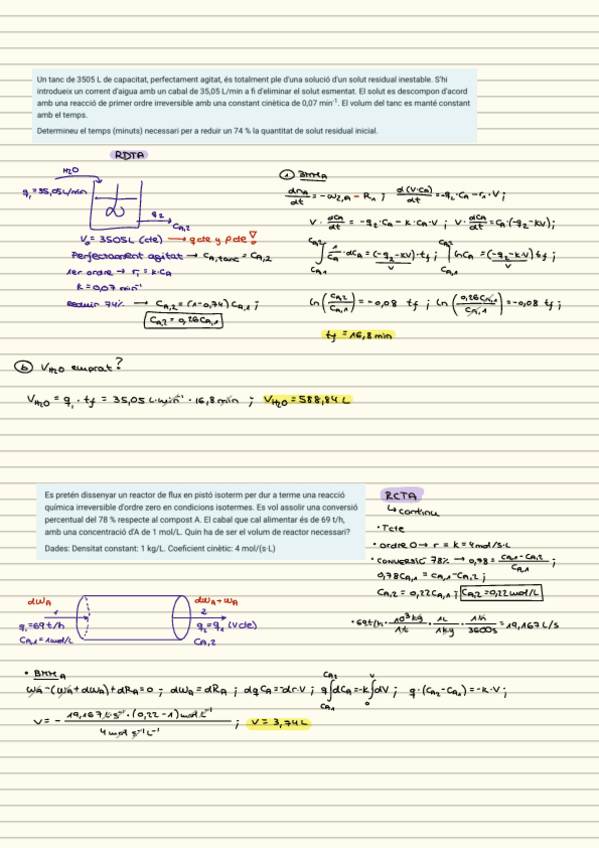 Un tanc de 3505 L de capacitat, perfectament agitat, és totalment ple d'una solució d'un solut residual inestable. S'hi
introdueix un corrent d'aigua amb un cabal de 35,05 L/min a fi d'eliminar el solut esmentat. El solut es descompon d'acord
amb una reacció de primer ordre irreversible amb una constant cinètica de 0,07 min⁻¹. El volum del tanc es manté constant
amb el temps.
Determineu el temps (minuts) necessari per a reduir un 74 % la quantitat de solut residual inicial.
RDTA
H₂O
q₁=35,05L/min
q₂
C_A,2
V₀= 3505L (cte) → q cte y ρ cte!
Perfectament agitat → C_A,tanc = C_A,2
1er ordre → r₁ = k·C_A
k=0,07 min⁻¹
Reduir 74% → C_A,2=(1-0,74)C_A,1 ;
C_A,2 = 0,26C_A,1
① BMM_A
dn_A/dt = -w_2,A - R_1 ; d(V·C_A)/dt = -q₂·C_A - r₁·V ;
V· dC_A/dt = -q₂·C_A - k·C_A·V ; V· dC_A/dt = C_A·(-q₂-kV) ;
∫_{C_A,1}^{C_A,2} 1/C_A · dC_A = (-q₂-kV)/V · t_f ; ln C_A = (-q₂-kV)/V t_f ;
ln(C_A,2/C_A,1) = -0,08 t_f ; ln(0,26C_A,1/C_A,1) = -0,08 t_f ;
t_f = 16,8 min
ⓑ V_H₂O emprat?
V_H₂O = q₁·t_f = 35,05 L·min⁻¹ · 16,8 min ; V_H₂O = 588,84 L
Es pretén dissenyar un reactor de flux en pistó isoterm per dur a terme una reacció
química irreversible d'ordre zero en condicions isotermes. Es vol assolir una conversió
percentual del 78 % respecte al compost A. El cabal que cal alimentar és de 69 t/h,
amb una concentració d'A de 1 mol/L. Quin ha de ser el volum de reactor necessari?
Dades: Densitat constant: 1 kg/L. Coeficient cinètic: 4 mol/(s·L)
RCTA
↳ continu
• T cte
• ordre 0 → r = k = 4mol/s·L
• CONVERSIÓ 78% → 0,78 = (C_A,1-C_A,2)/C_A,1 ;
0,78C_A,1 = C_A,1-C_A,2 ;
C_A,2 = 0,22C_A,1 ; C_A,2=0,22mol/L
• 69t/h · 10³kg/1t · 1L/1kg · 1h/3600s = 19,167 L/s
dw_A
1
q₁=69t/h
C_A,1 = 1mol/L
dw_A + w_A
2
q₂=q₁ (V cte)
C_A,2
• BMM_A
w_A-(w_A+dw_A)+dR_A=0 ; dw_A = dR_A ; dqC_A=-dr·V ; q∫_{C_A,1}^{C_A,2} dC_A=-k∫_0^V dV ; q·(C_A,2-C_A,1)=-k·V ;
V = - 19,167 L·s⁻¹·(0,22-1)mol·L⁻¹ / 4 mol s⁻¹L⁻¹ ; V = 3,74L